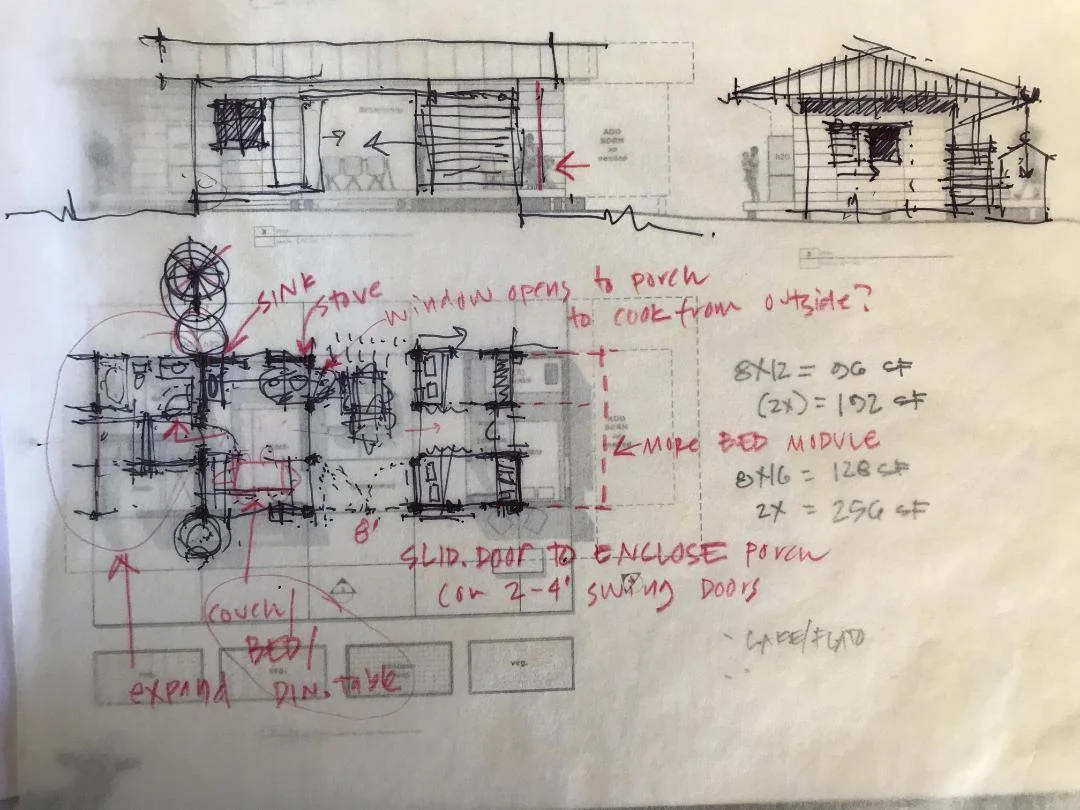 ADD
BDRM
H2O
SINK
Stove
window opens to porch
to cook from outside?
8X12 = 96 SF
(2X) = 192 SF
MORE BED MODULE
8X16 = 128 SF
2X = 256 SF
8'
SLID. DOOR TO ENCLOSE porch
(or 2-4' swing Doors
couch/
BED/
DIN. table
expand
veg.
veg.
LAKE/FLATO